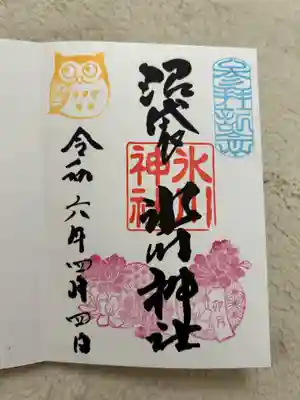 参拝記念
沼袋氷川神社
氷川
神社
卯月
令和六年四月四日